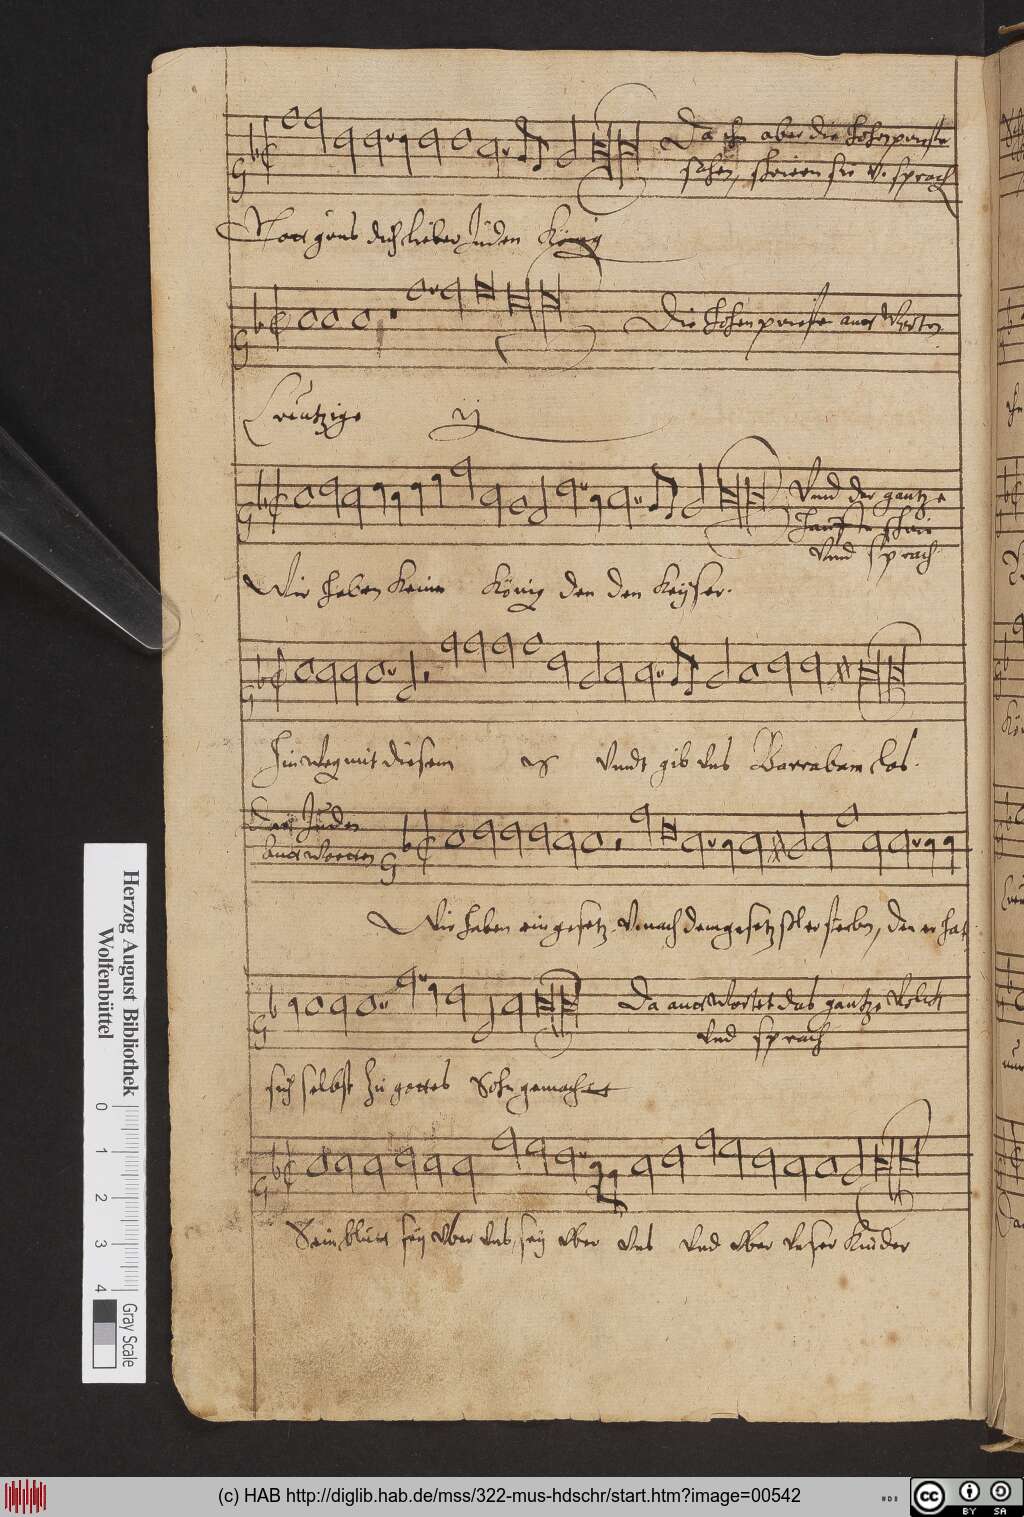 Da ihn aber die Hohenprieste
sahen, schrien sie v. sprach
grus dich lieber Juden König
Die Hohenpriester antworten
Creutzige ij
Vnnd der gantze
Hauffen schrie
Vnnd sprach
Wir haben keinen König den den Keyser.
Hinweg mit diesem ij Vnndt gib Vns Barrabam los.
Die Juden
antworten
Wir haben ein gesetz, V. nach dem gesetz sol er sterben, den er hat
Da antwortet das gantze Volck
vnd sprach
sich selbst zu gottes Sohn gemacht
Sein blutt sey vber vns, sey vber vns vnd vber vnser Kinder
Herzog August Bibliothek
Wolfenbüttel
0 1 2 3 4
Gray Scale
(c) HAB http://diglib.hab.de/mss/322-mus-hdschr/start.htm?image=00542
cc BY SA